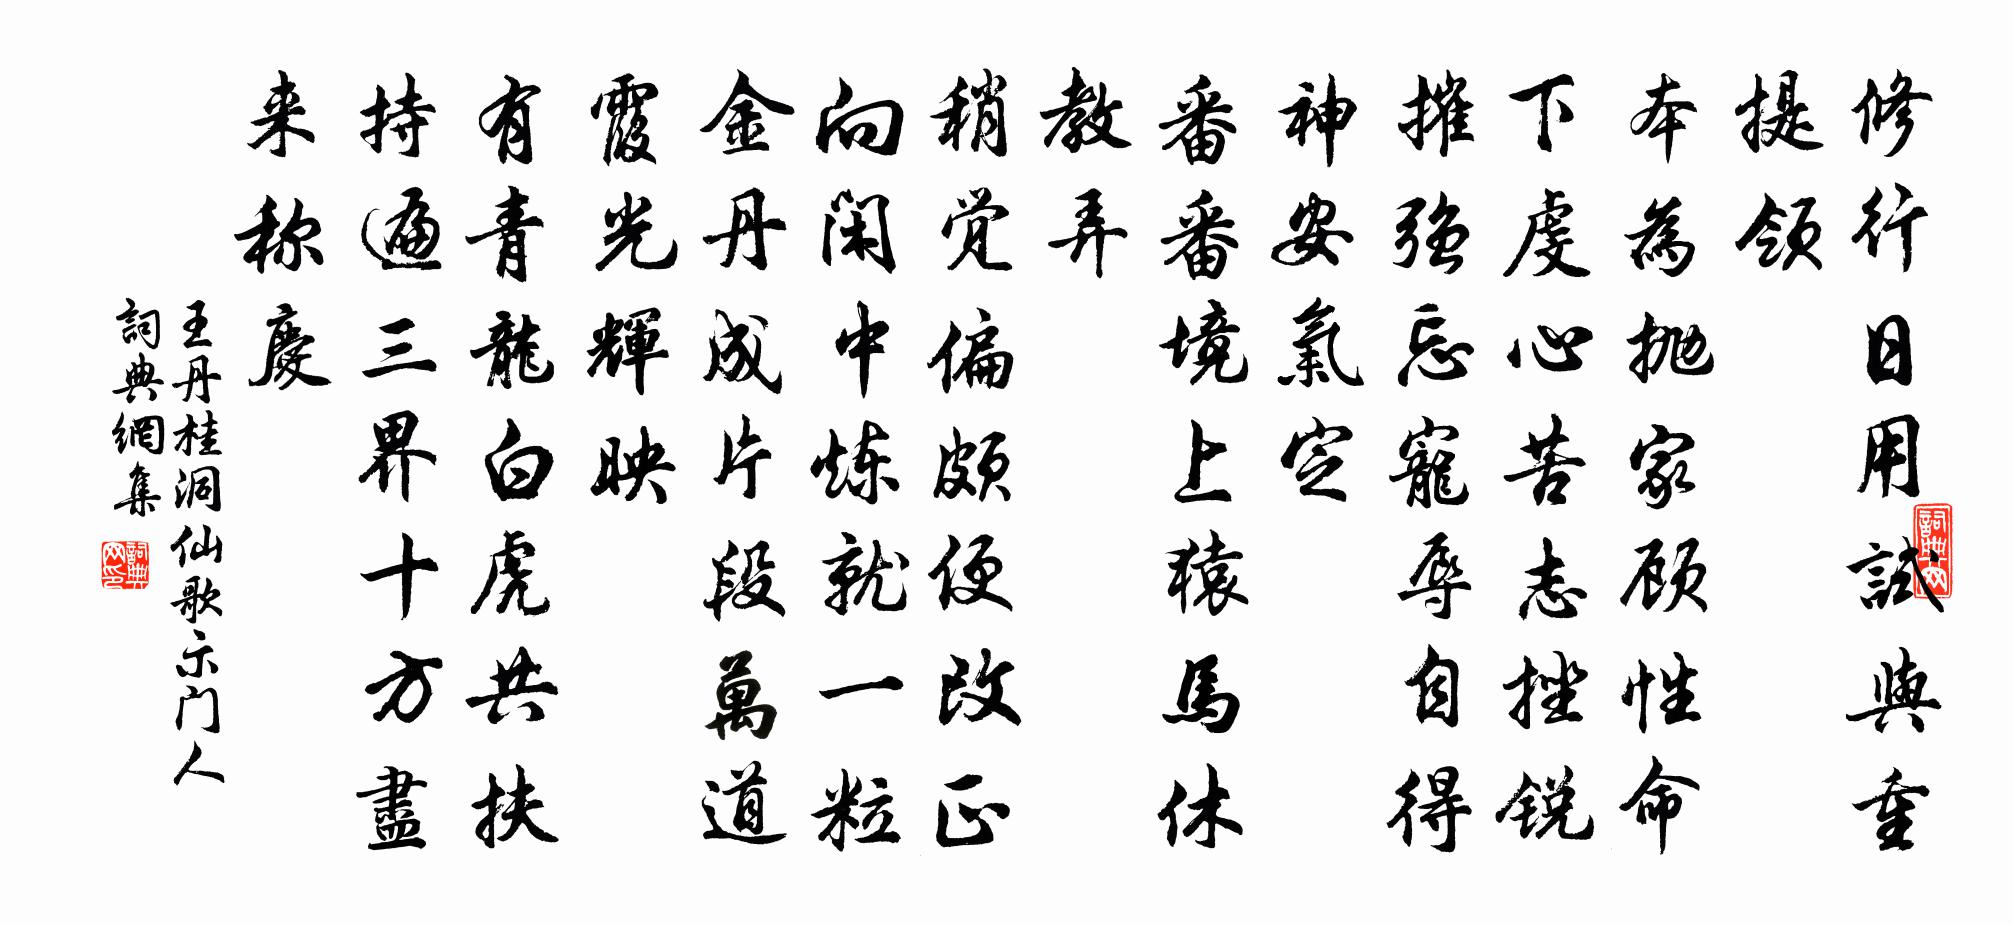 修行日用試與重
提領
本為抛家顾性命
下虔心苦志挫锐
摧强忘寵辱自得
神安氣定
番番境上猿馬休
教弄
稍觉偏颇便改正
向闲中炼就一粒
金丹成片段萬道
霞光輝映
有青龍白虎共扶
持遍三界十方盡
来称慶
王丹桂洞仙歌示门人
詞典網集
詞典网
詞典网印